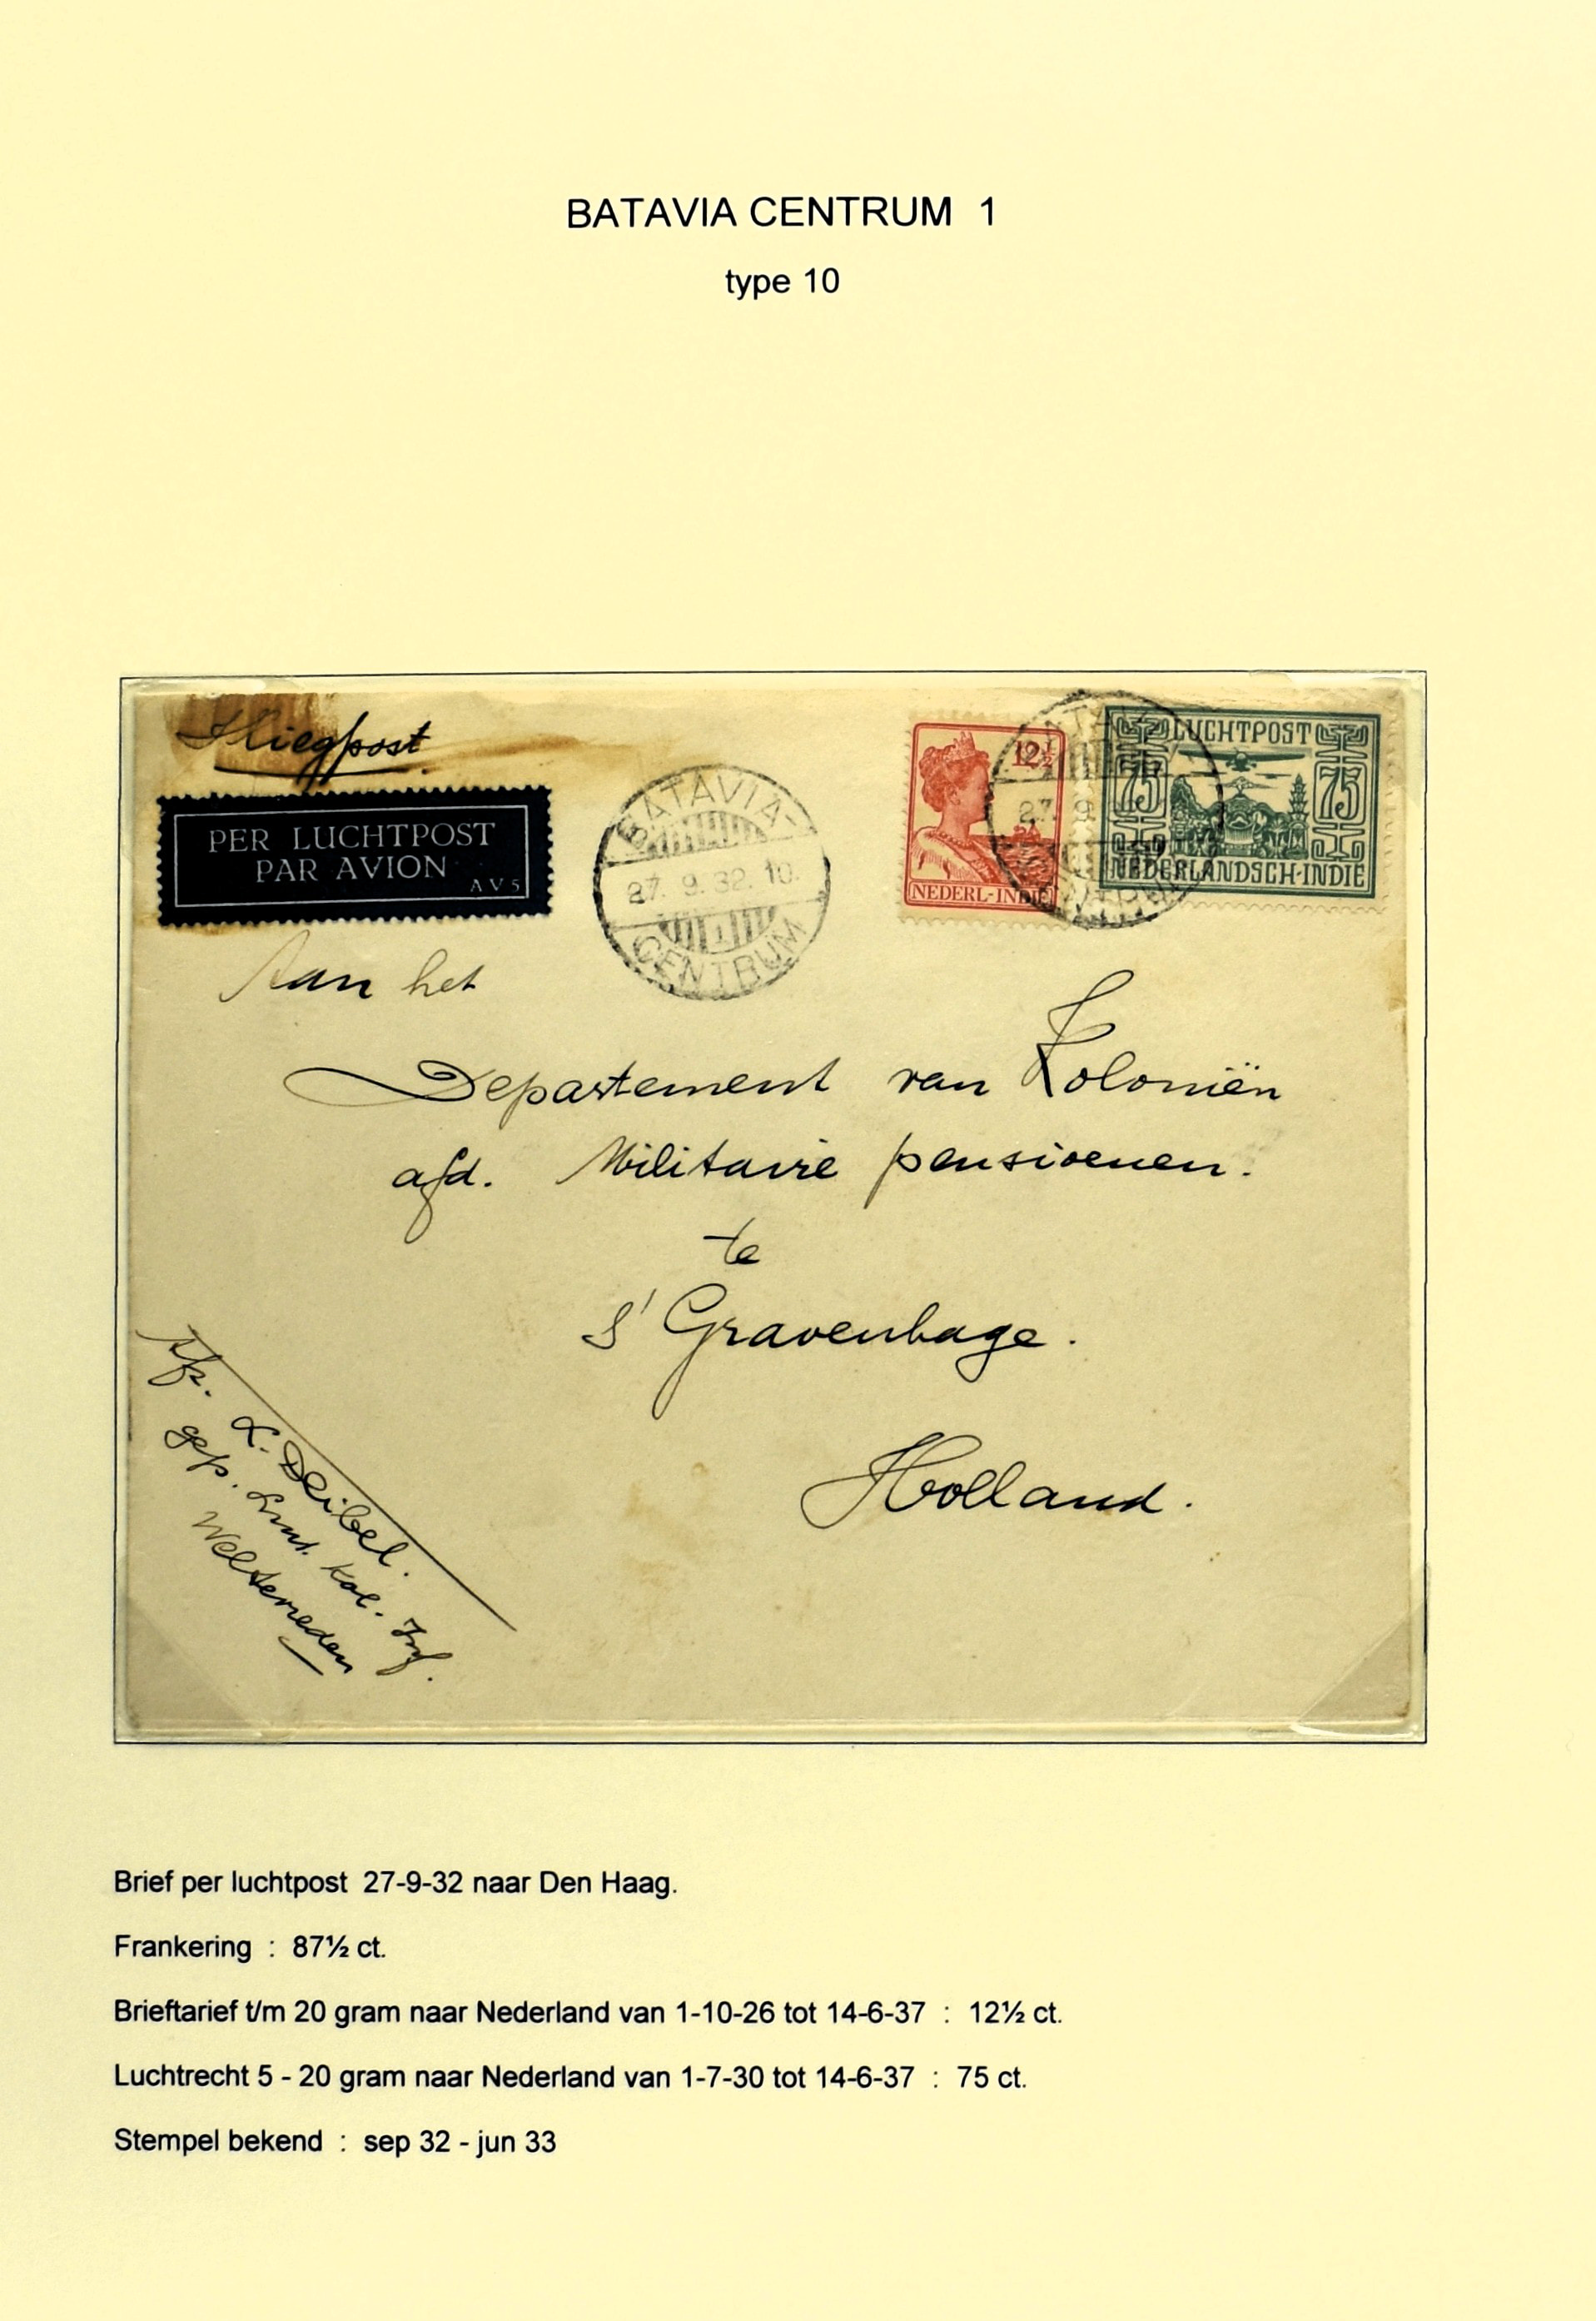 BATAVIA CENTRUM 1
type 10
Vliegpost
PER LUCHTPOST
PAR AVION
AV5
BATAVIA-
27. 9. 32. 10.
1
CENTRUM
12½
NEDERL-INDIË
27. 9
LUCHTPOST
75 75
NEDERLANDSCH-INDIE
Aan het
Departement van Koloniën
afd. Militaire pensioenen.
te
s' Gravenhage.
Holland.
Afz. L. Deibel.
gep. Lnt. Kol. Inf.
Weltevreden
Brief per luchtpost 27-9-32 naar Den Haag.
Frankering : 87½ ct.
Brieftarief t/m 20 gram naar Nederland van 1-10-26 tot 14-6-37 : 12½ ct.
Luchtrecht 5 - 20 gram naar Nederland van 1-7-30 tot 14-6-37 : 75 ct.
Stempel bekend : sep 32 - jun 33